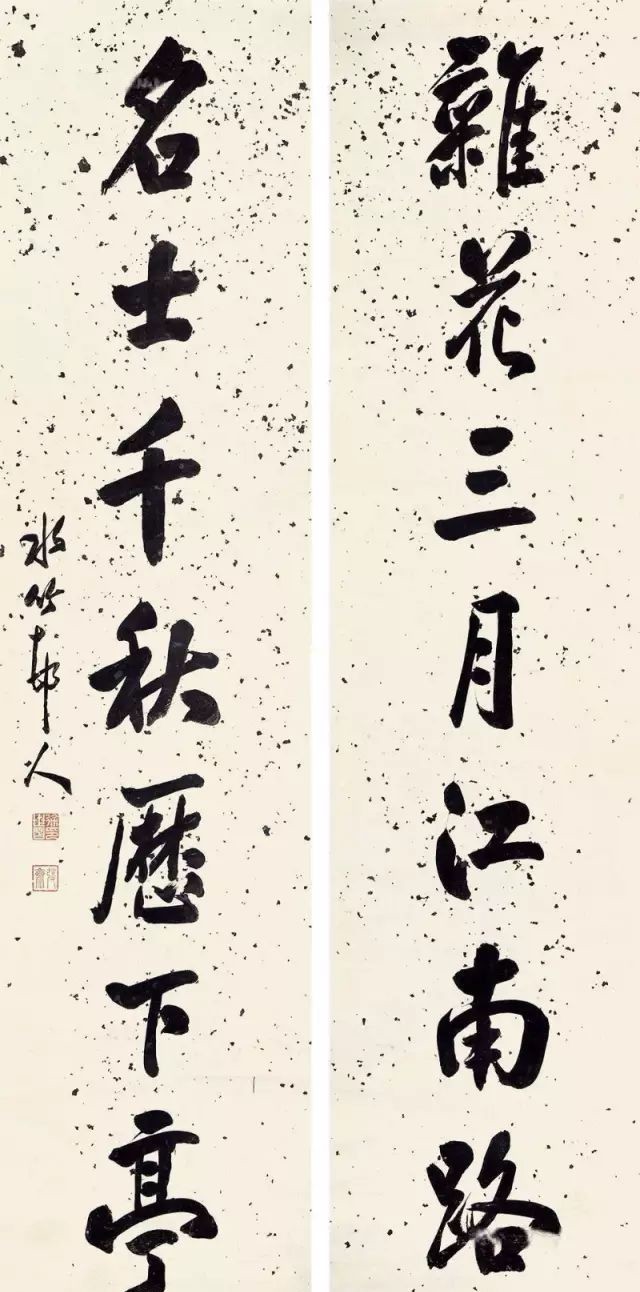 雜花三月江南路
名士千秋歷下亭
水竹邨人